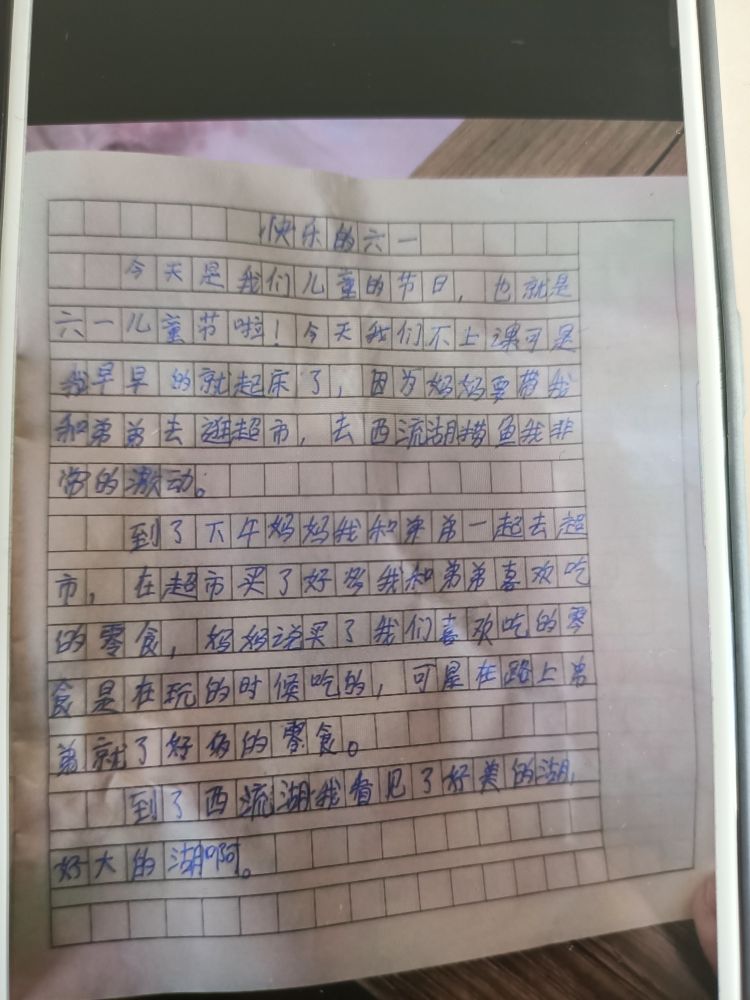 快乐的六一
今天是我们儿童的节日，也就是
六一儿童节啦！今天我们不上课可是
我早早的就起床了，因为妈妈要带我
和弟弟去逛超市，去西流湖捞鱼我非
常的激动。
到了下午妈妈我和弟弟一起去超
市，在超市买了好多我和弟弟喜欢吃
的零食，妈妈说买了我们喜欢吃的零
食是在玩的时候吃的，可是在路上弟
弟就了好多的零食。
到了西流湖我看见了好美的湖，
好大的湖啊。